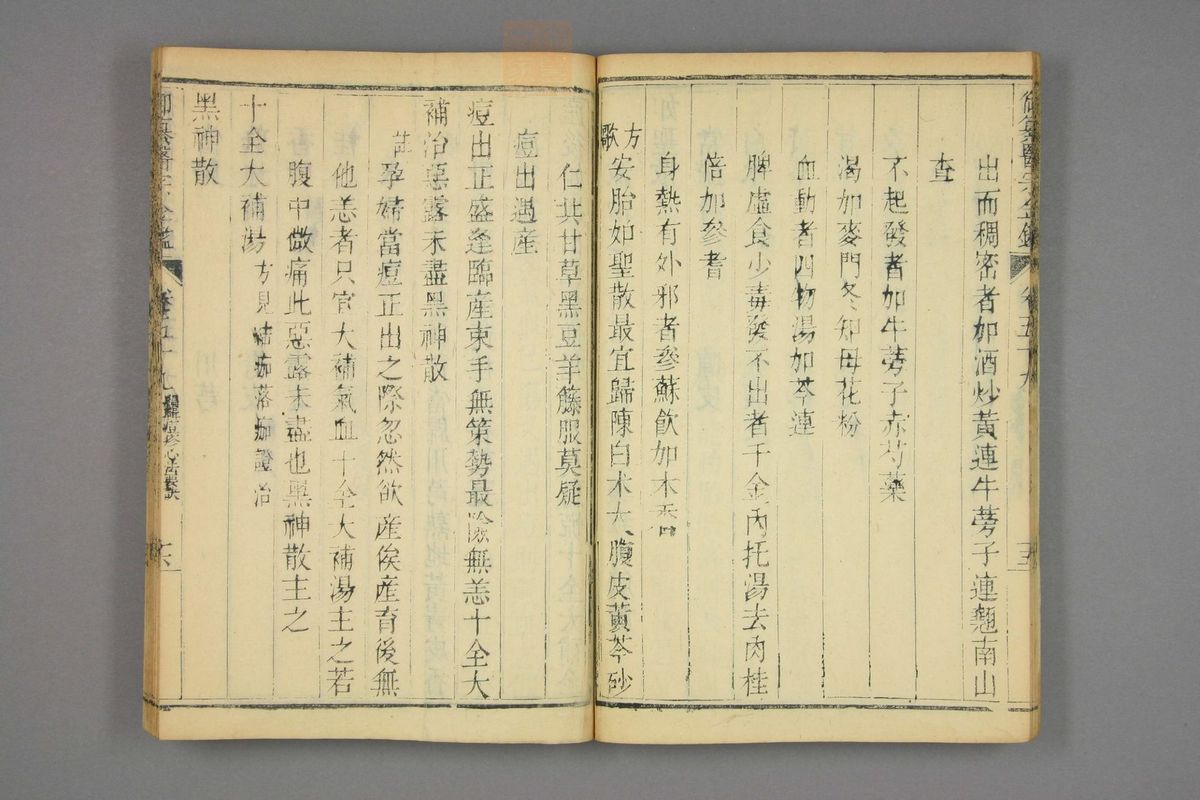 御纂醫宗金鑑 卷五十九 五
出而稠密者加酒炒黃連牛蒡子連翹南山
查
不起發者加牛蒡子赤芍藥
渴加麥門冬知母花粉
血動者四物湯加芩連
脾虛食少毒發不出者千金內托湯去肉桂
倍加參耆
身熱有外邪者參蘇飲加木香
方歌 安胎如聖散最宜歸陳白朮大腹皮黃芩砂
仁芎甘草黑豆羊籐服莫疑
痘出遇產
痘出正盛逢臨產束手無策勢最險無恙十全大
補治惡露未盡黑神散
註 孕婦當痘正出之際忽然欲產俟產育後無
他恙者只宜大補氣血十全大補湯主之若
腹中微痛此惡露未盡也黑神散主之
十全大補湯 方見結痂落痂證治
黑神散
御纂醫宗金鑑 卷五十九 痘疹心法要訣 六